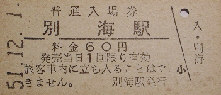 51.12.1
普通入場券
別海駅
料金60円
発売当日1回限り有効
旅客車内に立ち入ることはで
きません。 別海駅発行
入・別海
小